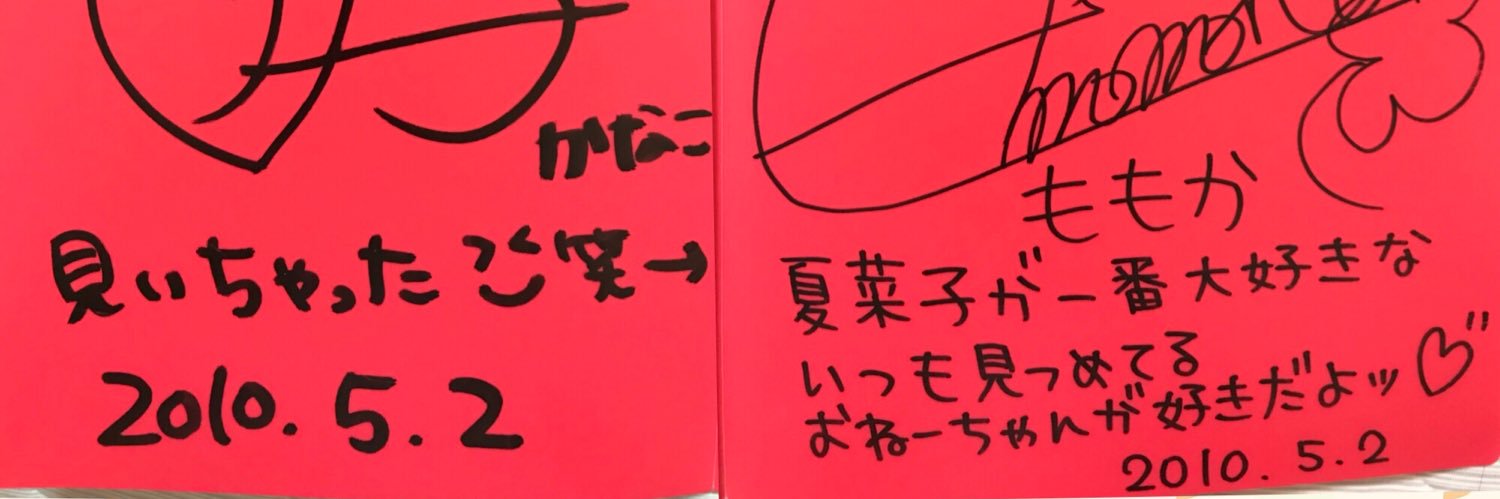 かなこ
見いちゃった 笑→
2010.5.2
momo
ももか
夏菜子が一番大好きな
いつも見つめてる
おねーちゃんが好きだよッ♡"
2010.5.2